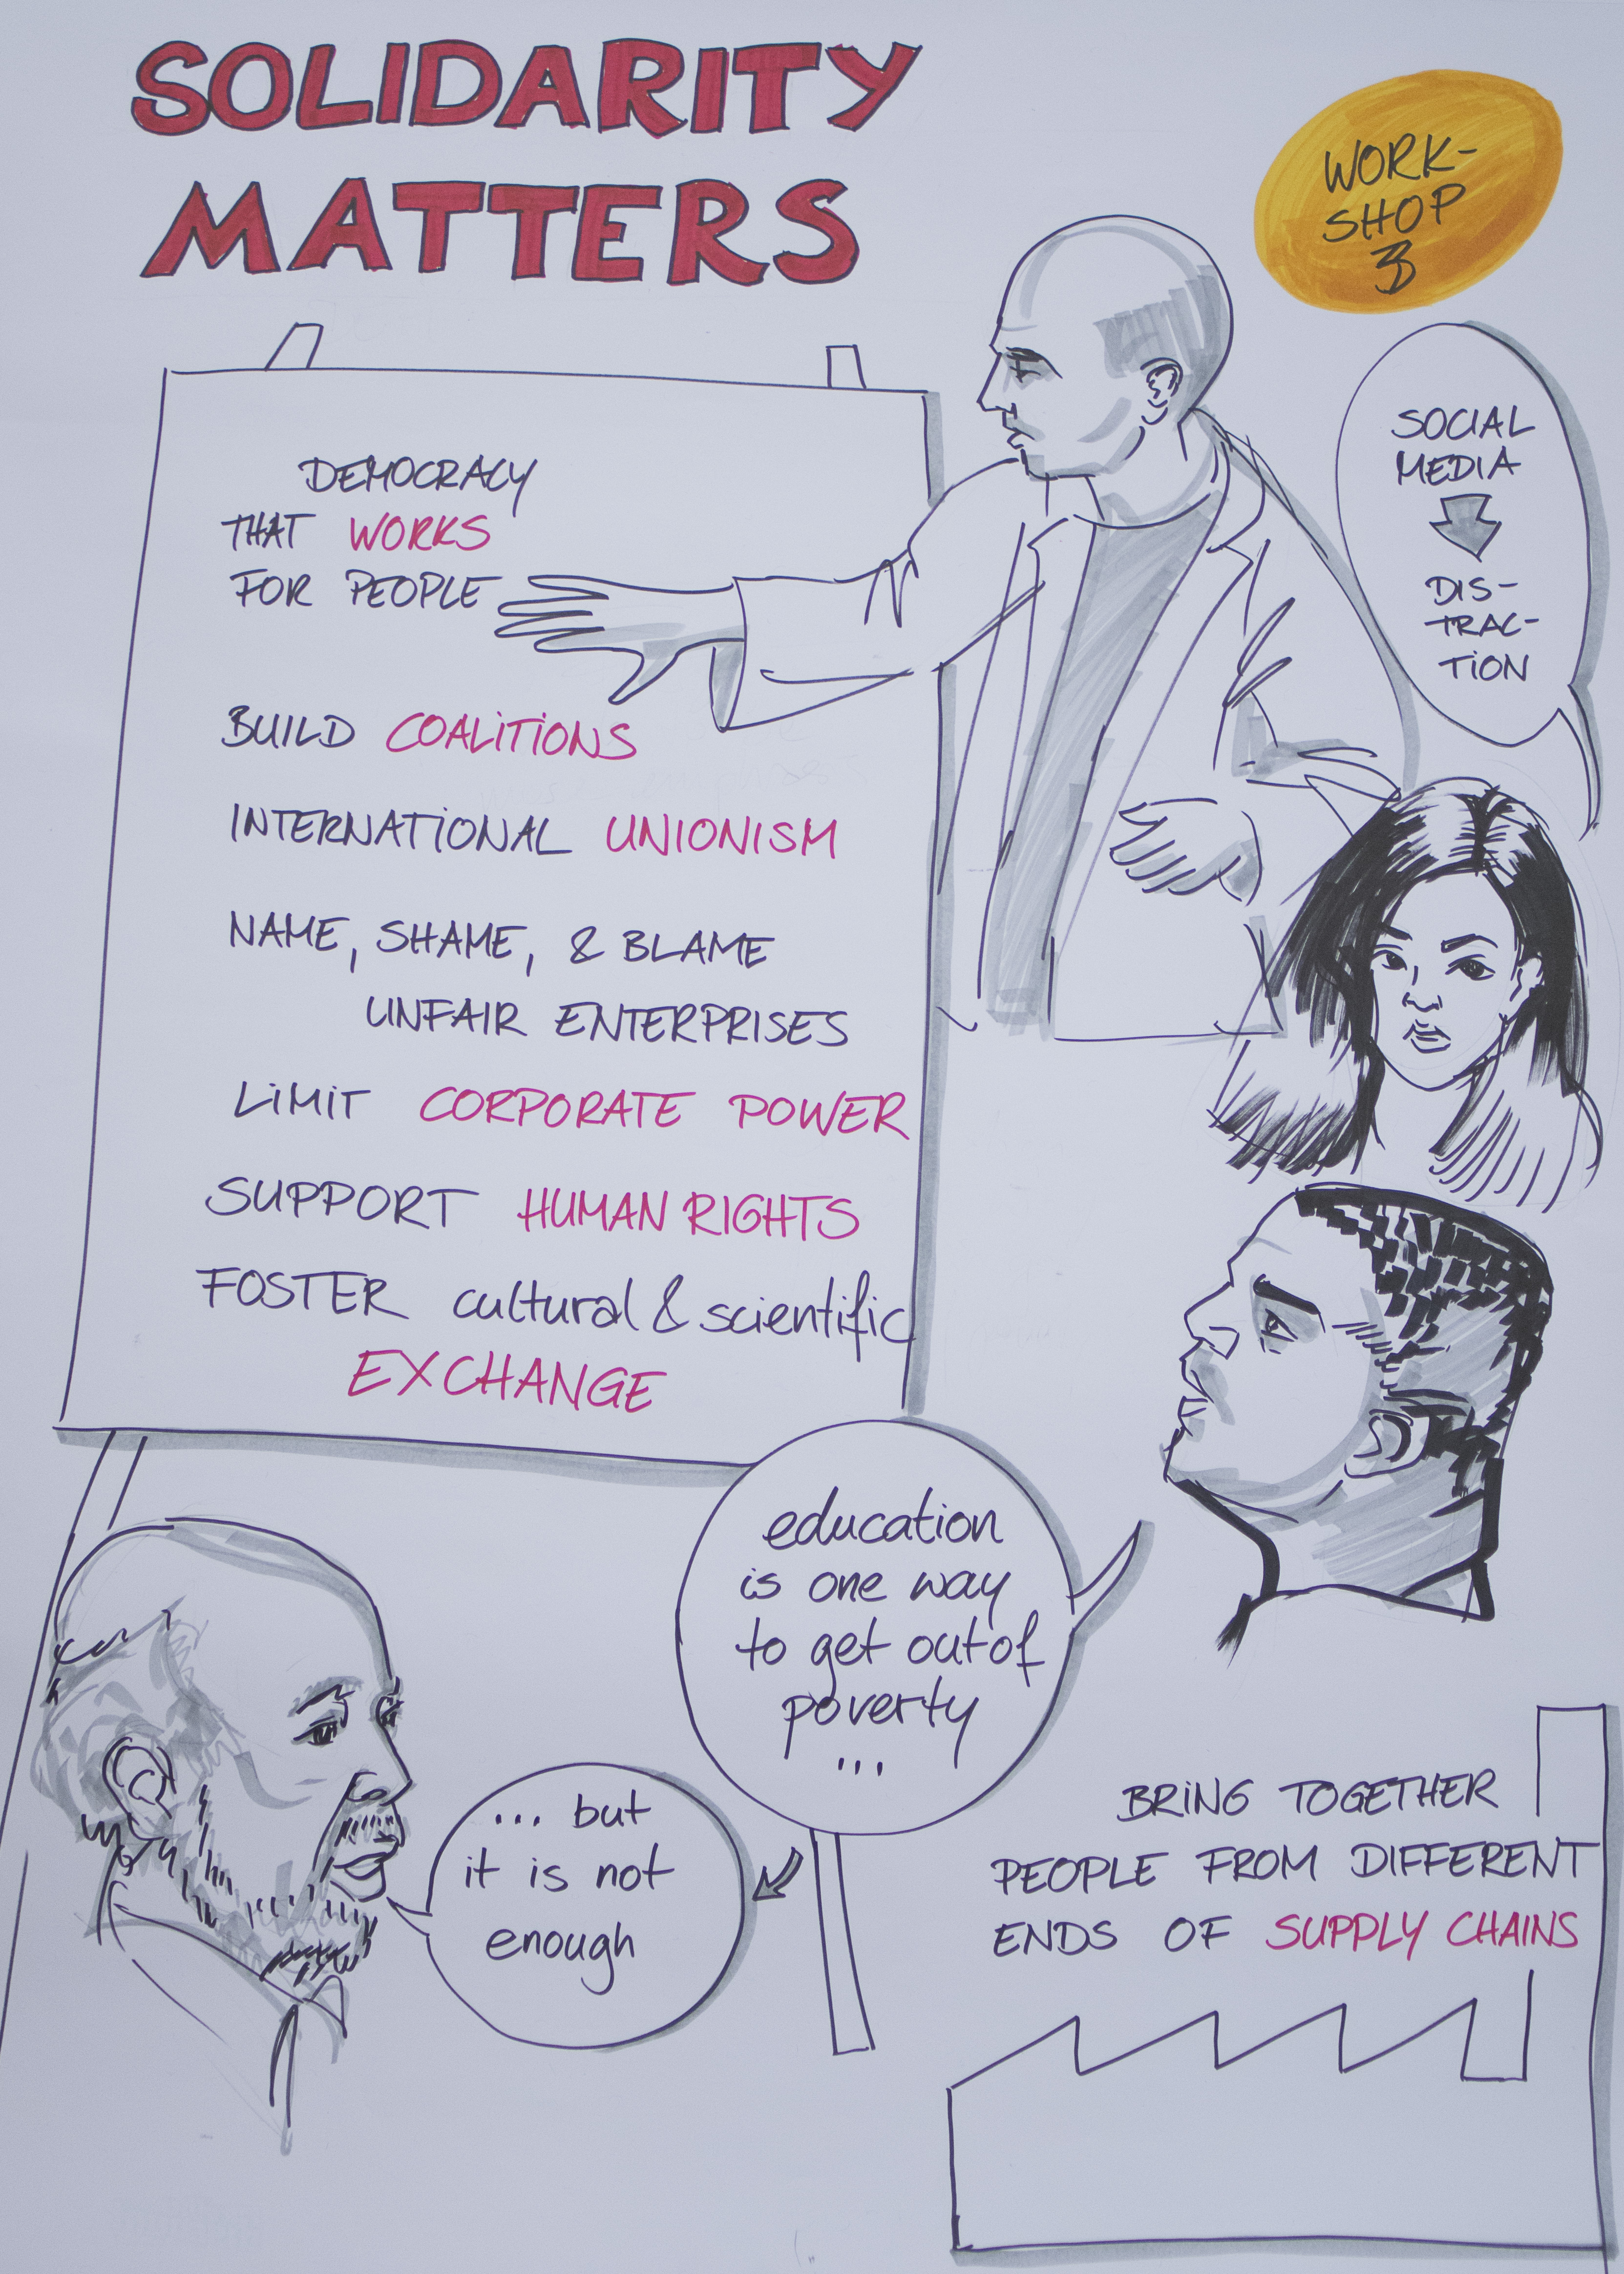 SOLIDARITY
MATTERS
WORK-
SHOP
3
DEMOCRACY
THAT WORKS
FOR PEOPLE
BUILD COALITIONS
INTERNATIONAL UNIONISM
NAME, SHAME, & BLAME
UNFAIR ENTERPRISES
LIMIT CORPORATE POWER
SUPPORT HUMAN RIGHTS
FOSTER cultural & scientific
EXCHANGE
SOCIAL
MEDIA
DIS-
TRAC-
TION
education
is one way
to get out of
poverty
...
... but
it is not
enough
BRING TOGETHER
PEOPLE FROM DIFFERENT
ENDS OF SUPPLY CHAINS